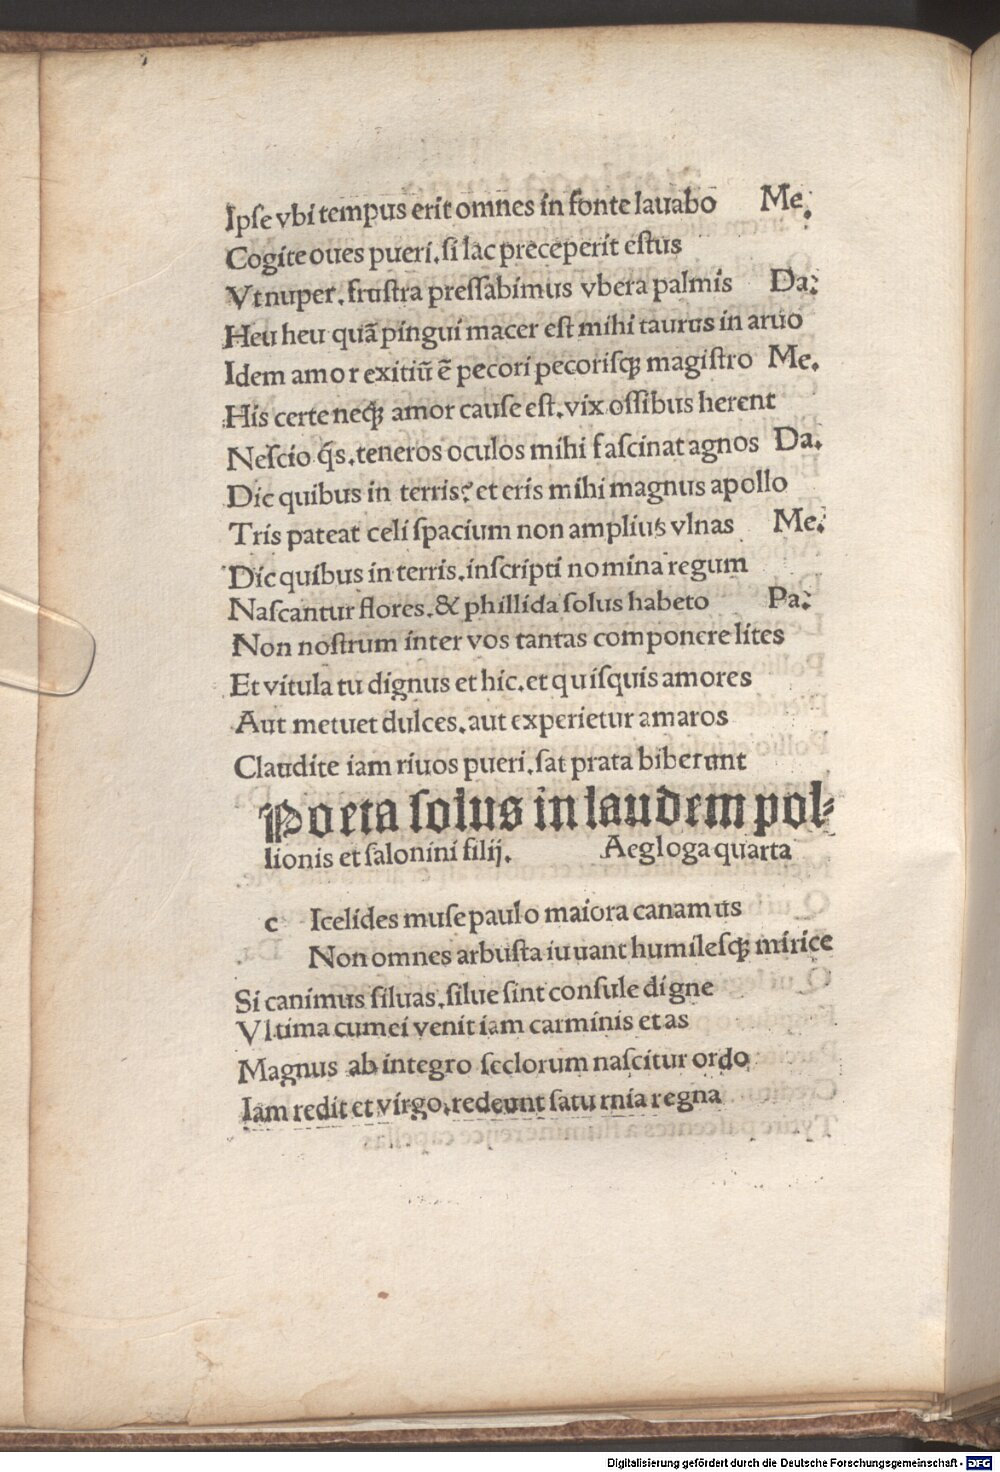 Ipse vbi tempus erit omnes in fonte lauabo Me.
Cogite oues pueri. si lac preceperit estus
Vt nuper. frustra pressabimus vbera palmis Da.
Heu heu quā pingui macer est mihi taurus in aruo
Idem amor exitiū ē pecori pecorisqꝫ magistro Me.
His certe neqꝫ amor cause est. vix ossibus herent
Nescio q̄s. teneros oculos mihi fascinat agnos Da.
Dic quibus in terris? et eris mihi magnus apollo
Tris pateat celi spacium non amplius vlnas Me.
Dic quibus in terris. inscripti nomina regum
Nascantur flores. & phillida solus habeto Pa.
Non nostrum inter vos tantas componere lites
Et vitula tu dignus et hic. et quisquis amores
Aut metuet dulces. aut experietur amaros
Claudite iam riuos pueri. sat prata biberunt
Poeta solus in laudem pol-
lionis et salonini filij. Aegloga quarta
c Icelides muse paulo maiora canamus
Non omnes arbusta iuuant humilesqꝫ mirice
Si canimus siluas. silue sint consule digne
Vltima cumei venit iam carminis etas
Magnus ab integro seclorum nascitur ordo
Iam redit et virgo. redeunt saturnia regna
Digitalisierung gefördert durch die Deutsche Forschungsgemeinschaft - DFG